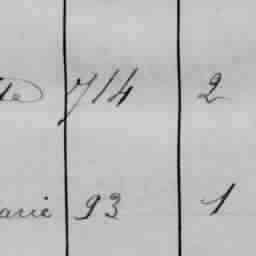 te 714 2
arie 93 1